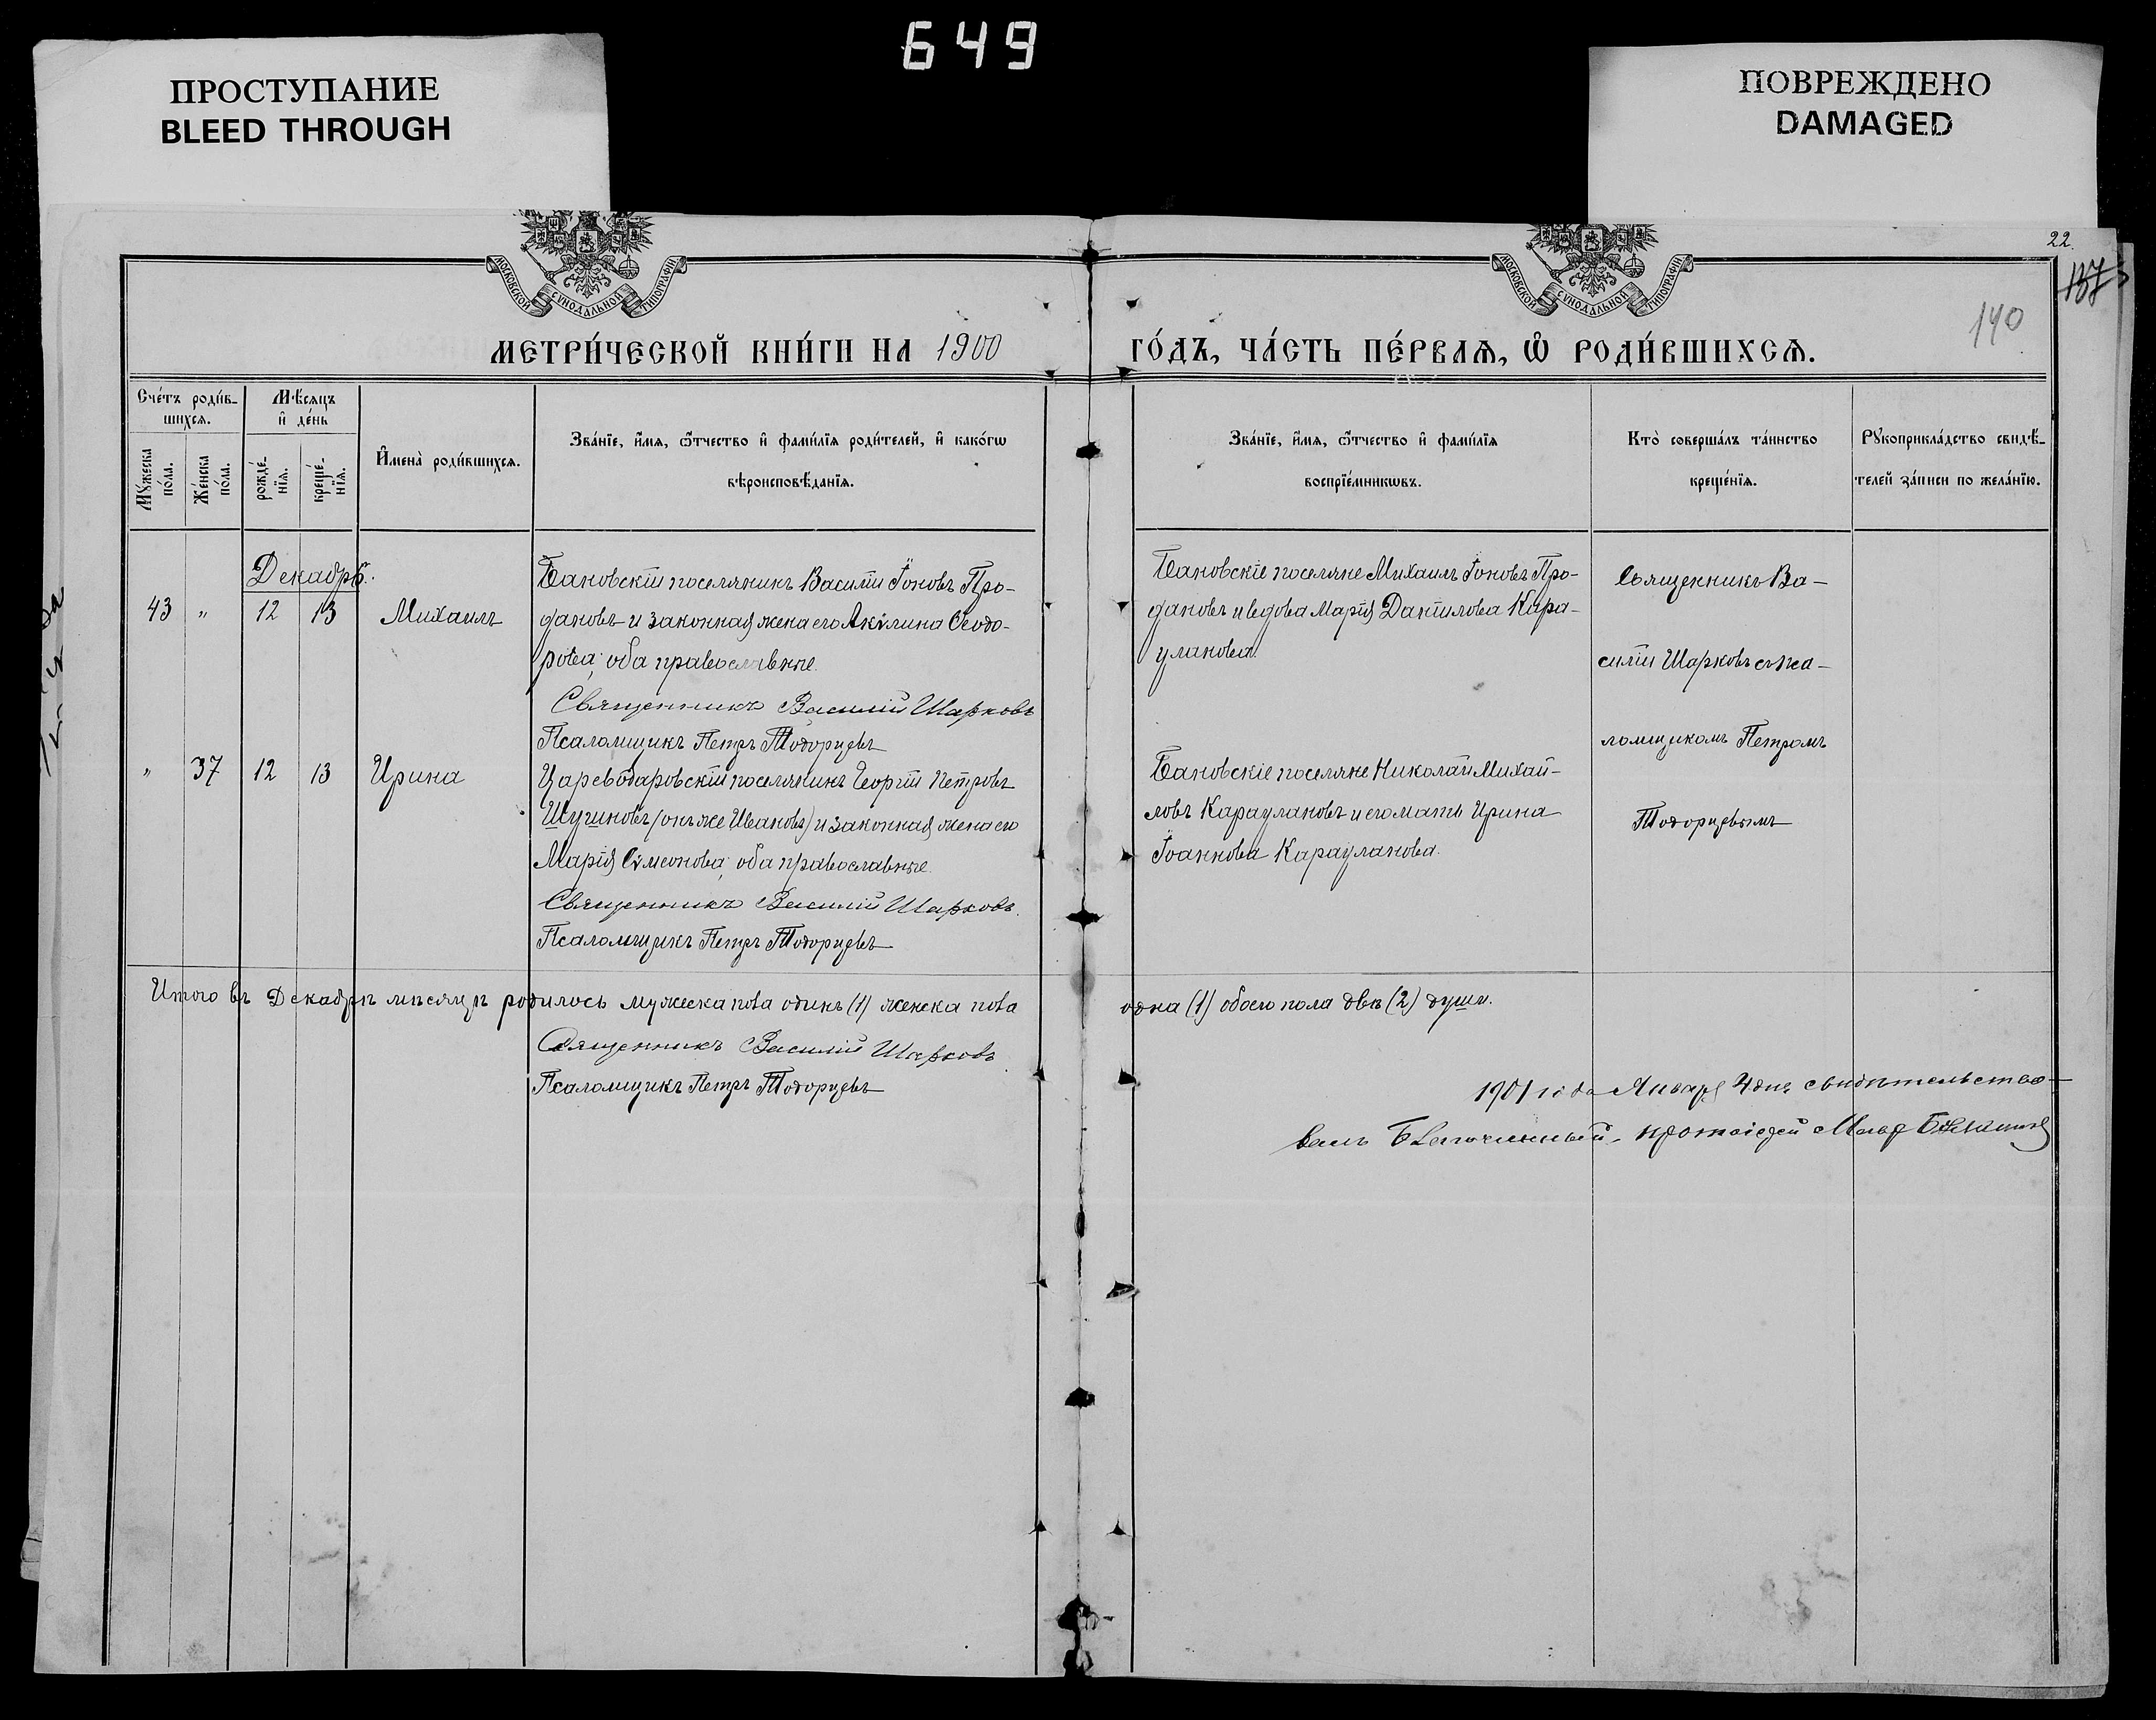 649
ПРОСТУПАНИЕ
BLEED THROUGH
ПОВРЕЖДЕНО
DAMAGED
22.
137
140
МОСКОВСКОЙ СУНОДАЛЬНОЙ ТИПОГРАФІИ
МОСКОВСКОЙ СУНОДАЛЬНОЙ ТИПОГРАФІИ
МЕТРИ́ЧЕСКОЙ КНИ́ГИ НА 1900
ГО́ДЪ, ЧА́СТЬ ПЕ́РВАѦ, Ѡ҆ РОДИ́ВШИХСѦ.
Сче́тъ роди́в-
шихсѧ.
Мꙋ́жеска по́ла.
Же́нска по́ла.
Мѣ́сяцъ
и҆ де́нь
рожде́-
нїѧ.
креще́-
нїѧ.
И҆мена̀ роди́вшихсѧ.
Зва́нїе, и҆́мѧ, ѻ҆́тчество и҆ фами́лїѧ роди́телей, и҆ како́гѡ
вѣроисповѣ́данїѧ.
Зва́нїе, и҆́мѧ, ѻ҆́тчество и҆ фами́лїѧ
воспрїе́мникѡвъ.
Кто̀ соверша́лъ та́инство
креще́нїѧ.
Рꙋкоприкла́дство свидѣ́-
телей за́писи по жела́нїю.
Декабрь.
43 " 12 13 Михаилъ
Бановскій поселянинъ Василій Іоновъ Про-
дановъ и законная жена его Акѵлина Ѳеодо-
рова; оба православные.
Священникъ Василій Шарковъ
Псаломщикъ Петръ Тодорцевъ
Бановскіе поселяне Михаилъ Іоновъ Про-
дановъ и вдова Марія Даніилова Кара-
уланова.
Священникъ Ва-
силій Шарковъ съ пса-
ломщикомъ Петромъ
Тодорцевымъ
" 37 12 13 Ирина
Царевода­ровскій поселянинъ Георгій Петровъ
Шушновъ (онъ же Ивановъ) и законная жена его
Марія Сѵмеонова; оба православные.
Священникъ Василій Шарковъ.
Псаломщикъ Петръ Тодорцевъ
Бановскіе поселяне Николай Михай-
ловъ Караулановъ и его мать Ирина
Іоаннова Карауланова.
Итого въ Декабрѣ мѣсяцѣ родилось мужеска пола одинъ (1) женска пола
одна (1) обоего пола двѣ (2) души.
Священникъ Василій Шарковъ
Псаломщикъ Петръ Тодорцевъ
1901 года Января 4 дня свидѣтельство-
валъ Благочинный, протоіерей